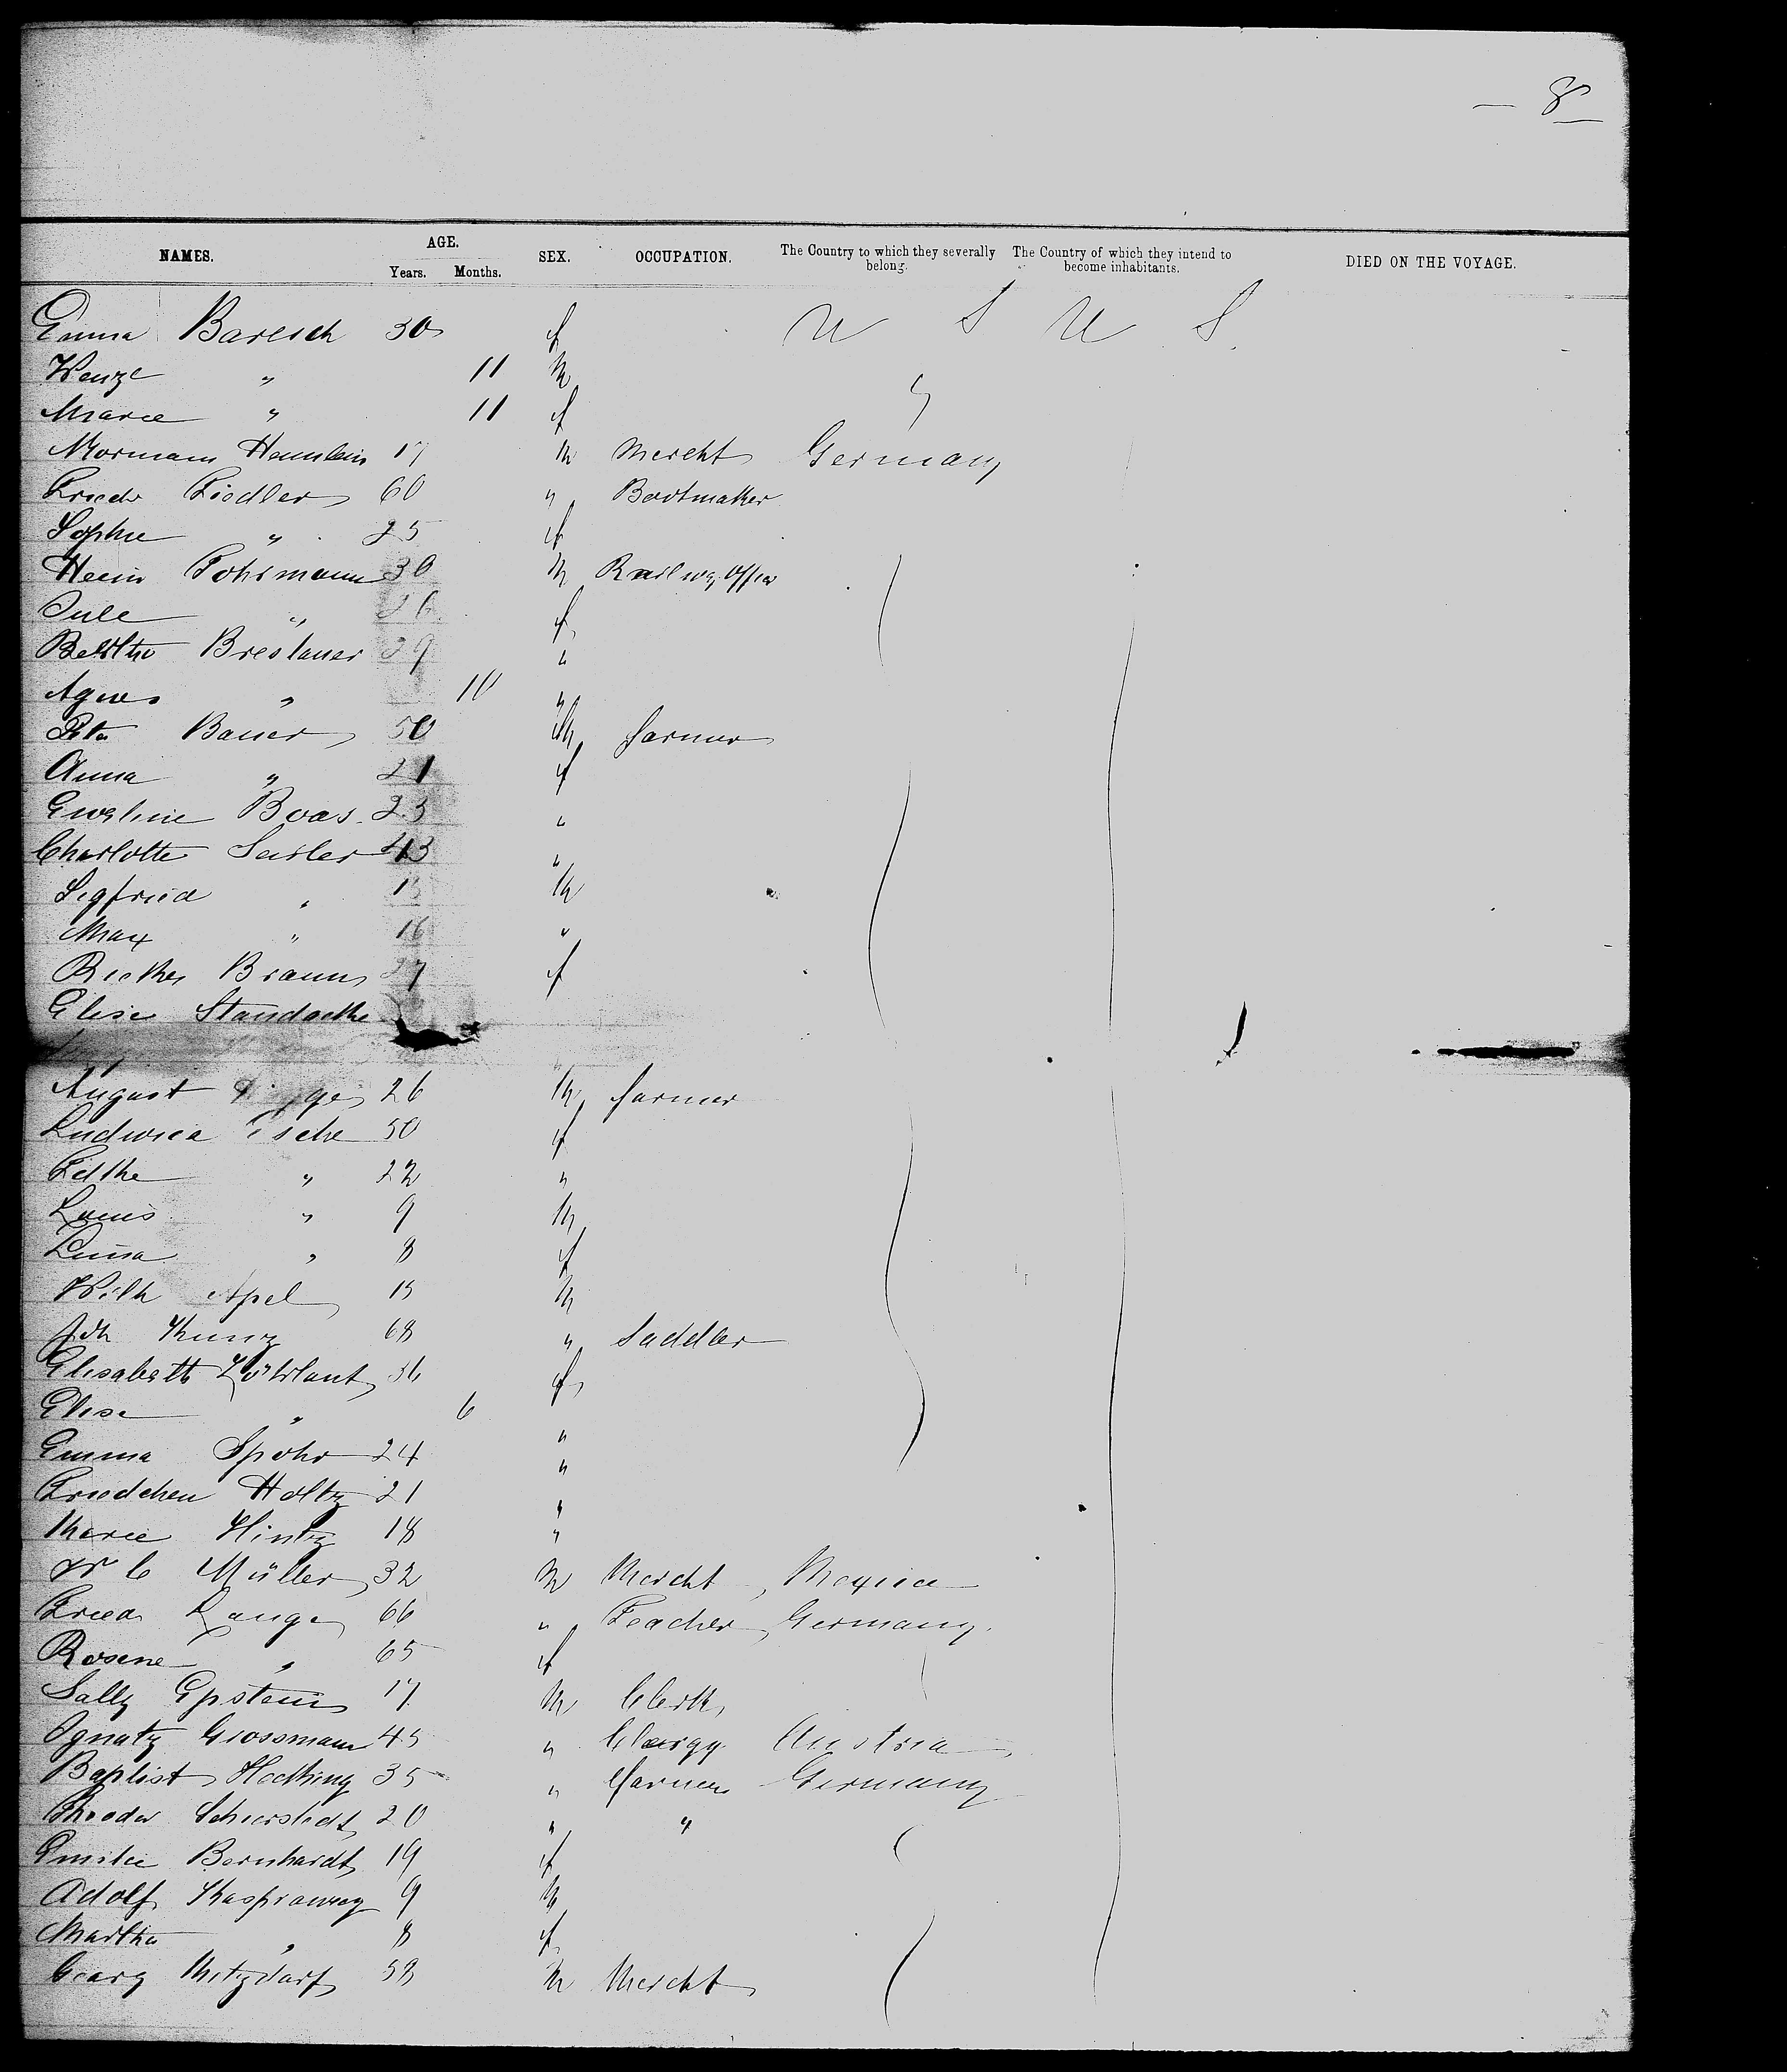 — 8
NAMES. AGE. Years. Months. SEX. OCCUPATION. The Country to which they severally belong. The Country of which they intend to become inhabitants. DIED ON THE VOYAGE.
Emma Baresch 30 f U S U S
Wenzl " 11 M "
Marie " 11 f
Hermann 17 M Mercht Germany
Friedr Fiedler 60 " Bootmaker
Sophie " 25 f
Heinr Pohlmann 30 M Railway Officer
Jule " 26 f
Bertha Breslauer 29 "
Agnes " 10 "
Peter Bauer 50 M farmer
Anna " 21 f
Eveline Boas 23 "
Charlotte Seisler 43 "
Segfried " 13 M
Max " 16 "
Braun 27 f
Elise
August 26 M farmer
Ludwica 50 f
" 22 "
Louis " 9 M
Luisa " 8 f
Wilh Apel 19 M
Joh Kunz 68 " Saddler
Elisabeth 36 f
Elise " 6 "
Emma Spohr 24 "
Friedchen Holtz 21 "
Marie Hintz 18 "
W C Müller 32 M Mercht Mexico
Fried Lange 66 " Teacher Germany
Rosine " 65 f
Sally Epstein 17 M Clerk
Ignatz Grossmann 45 " Clergy Austria
Baptist Hecking 35 " farmer Germany
Theodor Schierstedt 20 " "
Emilie Bernhardt 19 f
Adolf 9 M
Martha " 8 f
Georg Metzdorf 58 M Mercht